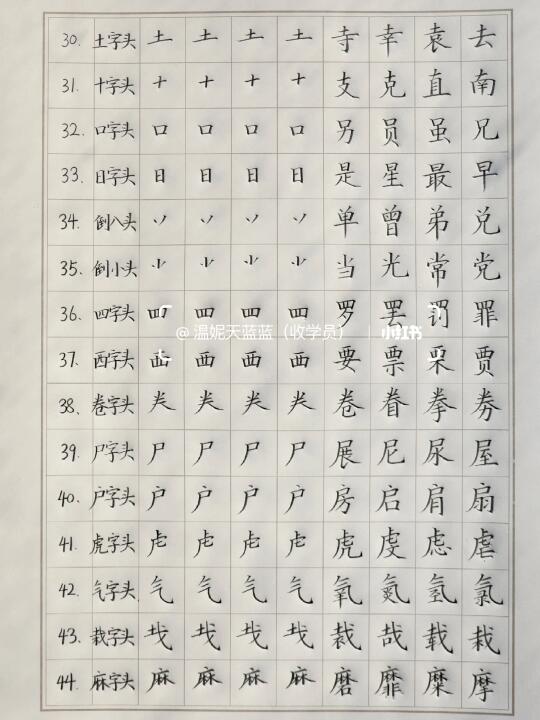 30. 土字头 土 土 土 土 寺 幸 袁 去
31. 十字头 十 十 十 十 支 克 直 南
32. 口字头 口 口 口 口 另 员 虽 兄
33. 日字头 日 日 日 日 是 星 最 早
34. 倒八头 丷 丷 丷 丷 单 曾 弟 兑
35. 倒小头 ⺌ ⺌ ⺌ ⺌ 当 光 常 党
36. 四字头 罒 罒 罒 罒 罗 罢 罚 罪
@温妮天蓝蓝（收学员） 小红书
37. 西字头 西 西 西 西 要 票 栗 贾
38. 卷字头 龹 龹 龹 龹 卷 眷 拳 券
39. 尸字头 尸 尸 尸 尸 展 尼 尿 屋
40. 户字头 户 户 户 户 房 启 肩 扇
41. 虎字头 虍 虍 虍 虍 虎 虔 虑 虐
42. 气字头 气 气 气 气 氧 氮 氢 氯
43. 栽字头 𢦏 𢦏 𢦏 𢦏 裁 哉 载 栽
44. 麻字头 麻 麻 麻 麻 磨 靡 糜 摩